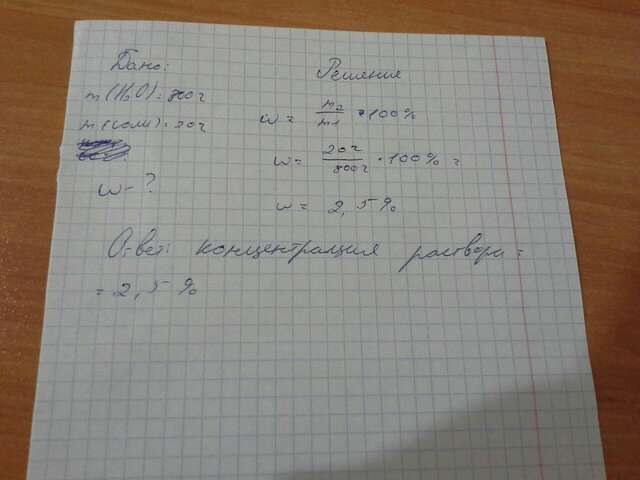 Дано:
m(H₂O)=800г
m(соли)=20г
ω-?
Решение
ω= m₂/m1 •100%
ω= 20г/800г •100% =
ω= 2,5%
Ответ: концентрация раствора =
= 2,5%